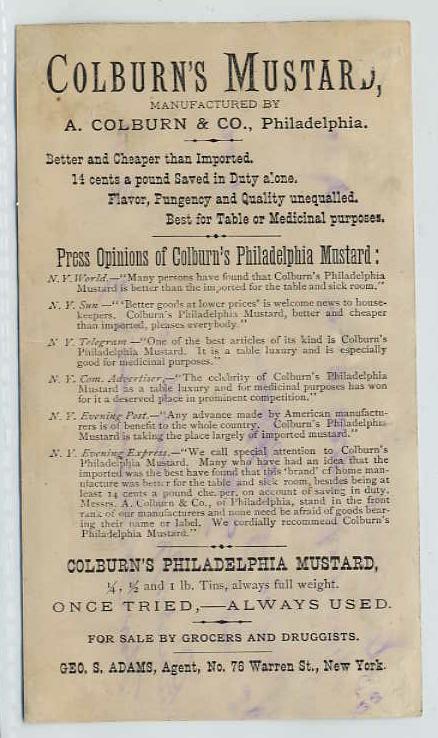 COLBURN'S MUSTARD,
MANUFACTURED BY
A. COLBURN & CO., Philadelphia.
Better and Cheaper than Imported.
14 cents a pound Saved in Duty alone.
Flavor, Pungency and Quality unequalled.
Best for Table or Medicinal purposes.
Press Opinions of Colburn's Philadelphia Mustard:
N. Y. World.—"Many persons have found that Colburn's Philadelphia
Mustard is better than the imported for the table and sick room."
N. Y. Sun—"'Better goods at lower prices' is welcome news to house-
keepers. Colburn's Philadelphia Mustard, better and cheaper
than imported, pleases everybody."
N. Y. Telegram—"One of the best articles of its kind is Colburn's
Philadelphia Mustard. It is a table luxury and is especially
good for medicinal purposes."
N. Y. Com. Advertiser,—"The celebrity of Colburn's Philadelphia
Mustard as a table luxury and for medicinal purposes has won
for it a deserved place in prominent competition."
N. Y. Evening Post.—"Any advance made by American manufactu-
rers is of benefit to the whole country. Colburn's Philadelphia
Mustard is taking the place largely of imported mustard."
N. Y. Evening Express.—"We call special attention to Colburn's
Philadelphia Mustard. Many who have had an idea that the
imported was the best have found that this 'brand' of home man-
ufacture was better for the table and sick room, besides being at
least 14 cents a pound cheaper, on account of saving in duty.
Messrs. A. Colburn & Co., of Philadelphia, stand in the front
rank of our manufacturers and none need be afraid of goods bear-
ing their name or label. We cordially recommend Colburn's
Philadelphia Mustard."
COLBURN'S PHILADELPHIA MUSTARD,
¼, ½ and 1 lb. Tins, always full weight.
ONCE TRIED,—ALWAYS USED.
FOR SALE BY GROCERS AND DRUGGISTS.
GEO. S. ADAMS, Agent, No. 76 Warren St., New York.